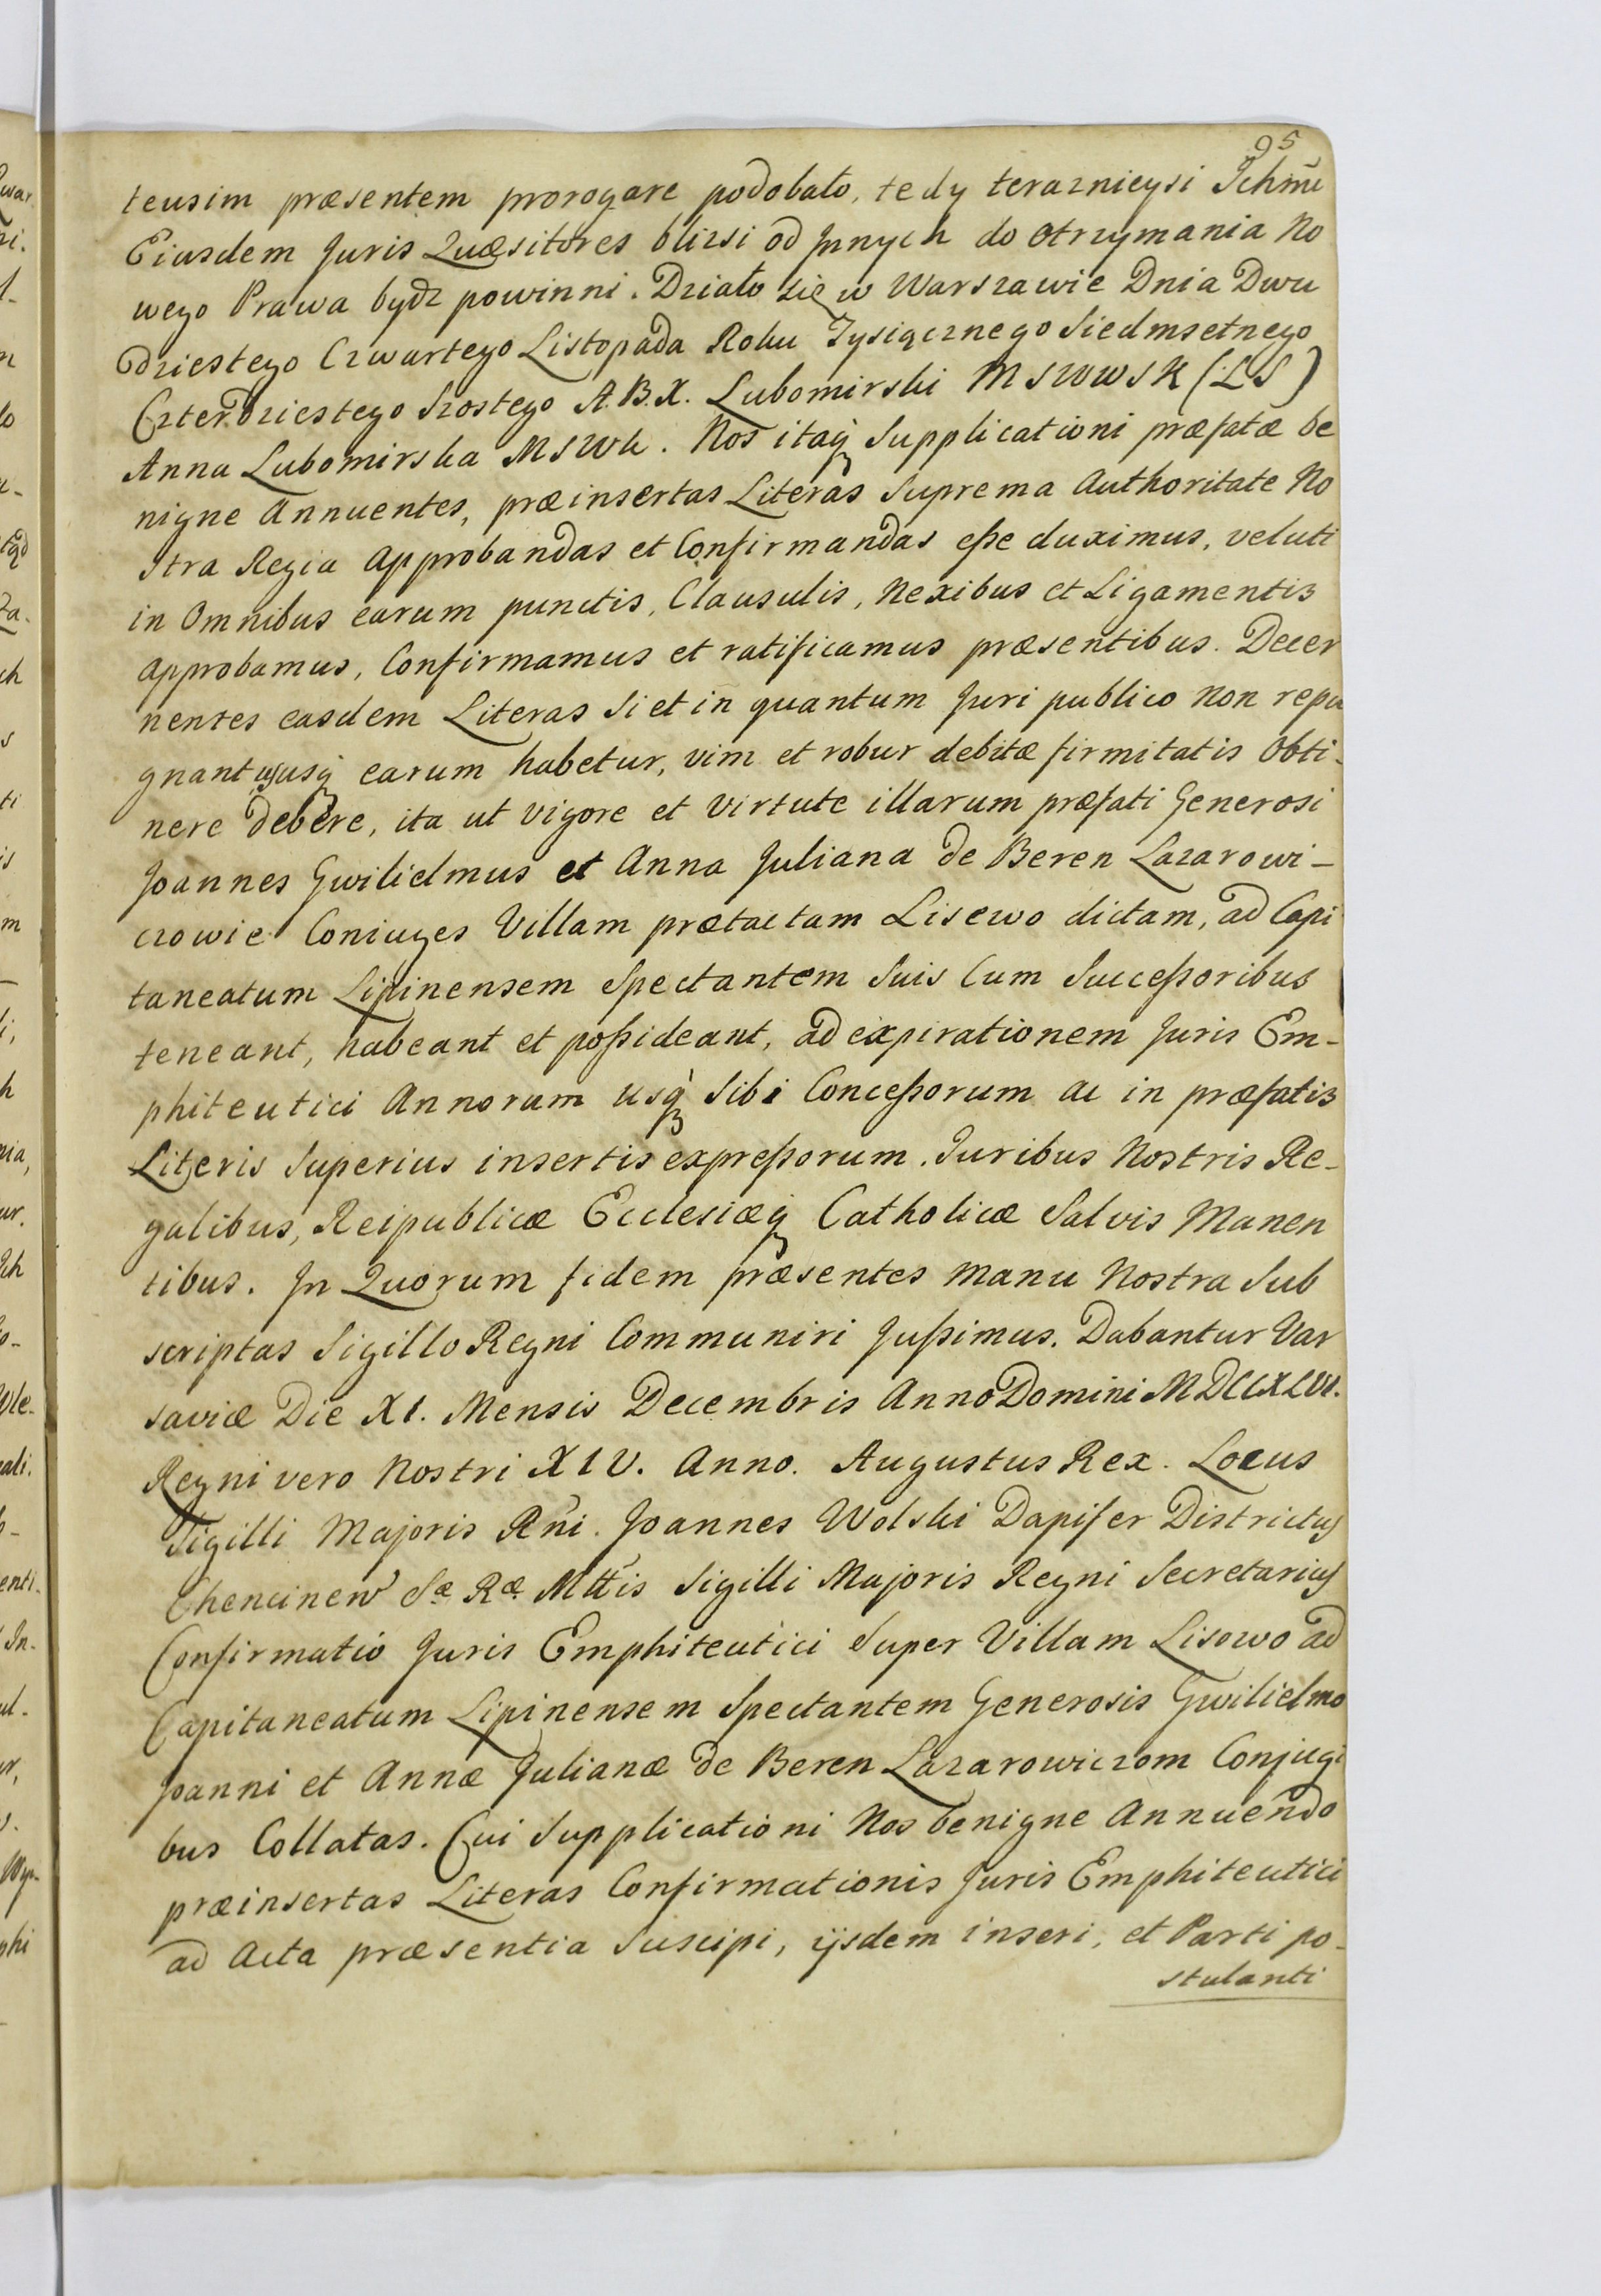 95
teusim præsentem prorogare podobało, tedy teraznieysi Ichmū
Eiusdem Juris Quæsitores blizsi od Jnnych do otrzymania No
wego Prawa bydz powinni. Działo się w Warszawie Dnia Dwu
dziestego Czwartego Listopada Roku Tysiącznego Siedmsetnego
Czterdziestego Szostego A.B.X. Lubomirski MSWWSK (LS)
Anna Lubomirska MSWK. Nos itaq̢ Supplicationi præfatæ be
nigne Annuentes, præinsertas Literas Suprema Authoritate No
stra Regia Approbandas et Confirmandas eße duximus, veluti
in Omnibus earum punctis, Clausulis, Nexibus et Ligamentis
Approbamus, Confirmamus et ratificamus præsentibus. Decer
nentes easdem Literas Si et in quantum Juri publico non repu
gnant ususq̢ earum habetur, vim et robur debitæ firmitatis Obti-
nere debere, ita ut vigore et virtute illarum præfati Generosi
Joannes Gwilielmus et Anna Juliana de Beren Lazarowi-
czowie Coniuges Villam prætactam Lisewo dictam, ad Capi
taneatum Lipinensem Spectantem Suis Cum Succeßoribus
teneant, habeant et poßideant, ad expirationem Juris Em-
phiteutici Annorum usq̢ Sibi Conceßorum ac in præfatis
Literis Superius insertis expreßorum. Juribus Nostris Re-
galibus, Reipublicæ Ecclesiæq̢ Catholicæ Salvis Manen
tibus. Jn Quorum fidem præsentes manu Nostra Sub
scriptas Sigillo Regni Communiri Jußimus. Dabantur Var
saviæ Die XI. Mensis Decembris Anno Domini MDCCXLVI.
Regni vero Nostri XIV. Anno. Augustus Rex. Locus
Sigilli Majoris Rñi. Joannes Wolski Dapifer Districtus
Chencinen Sæ Ræ Mttis Sigilli Majoris Regni Secretarius
Confirmatio Juris Emphiteutici Super Villam Lisowo ad
Capitaneatum Lipinensem Spectantem Generosis Gwilielmo
Joanni et Annæ Julianæ de Beren Lazarowiczom Conjugi
bus Collatas. Cui Supplicationi Nos benigne Annuendo
præinsertas Literas Confirmationis Juris Emphiteutici
ad Acta præsentia Suscipi, ijsdem inseri, et Parti po-
stulanti